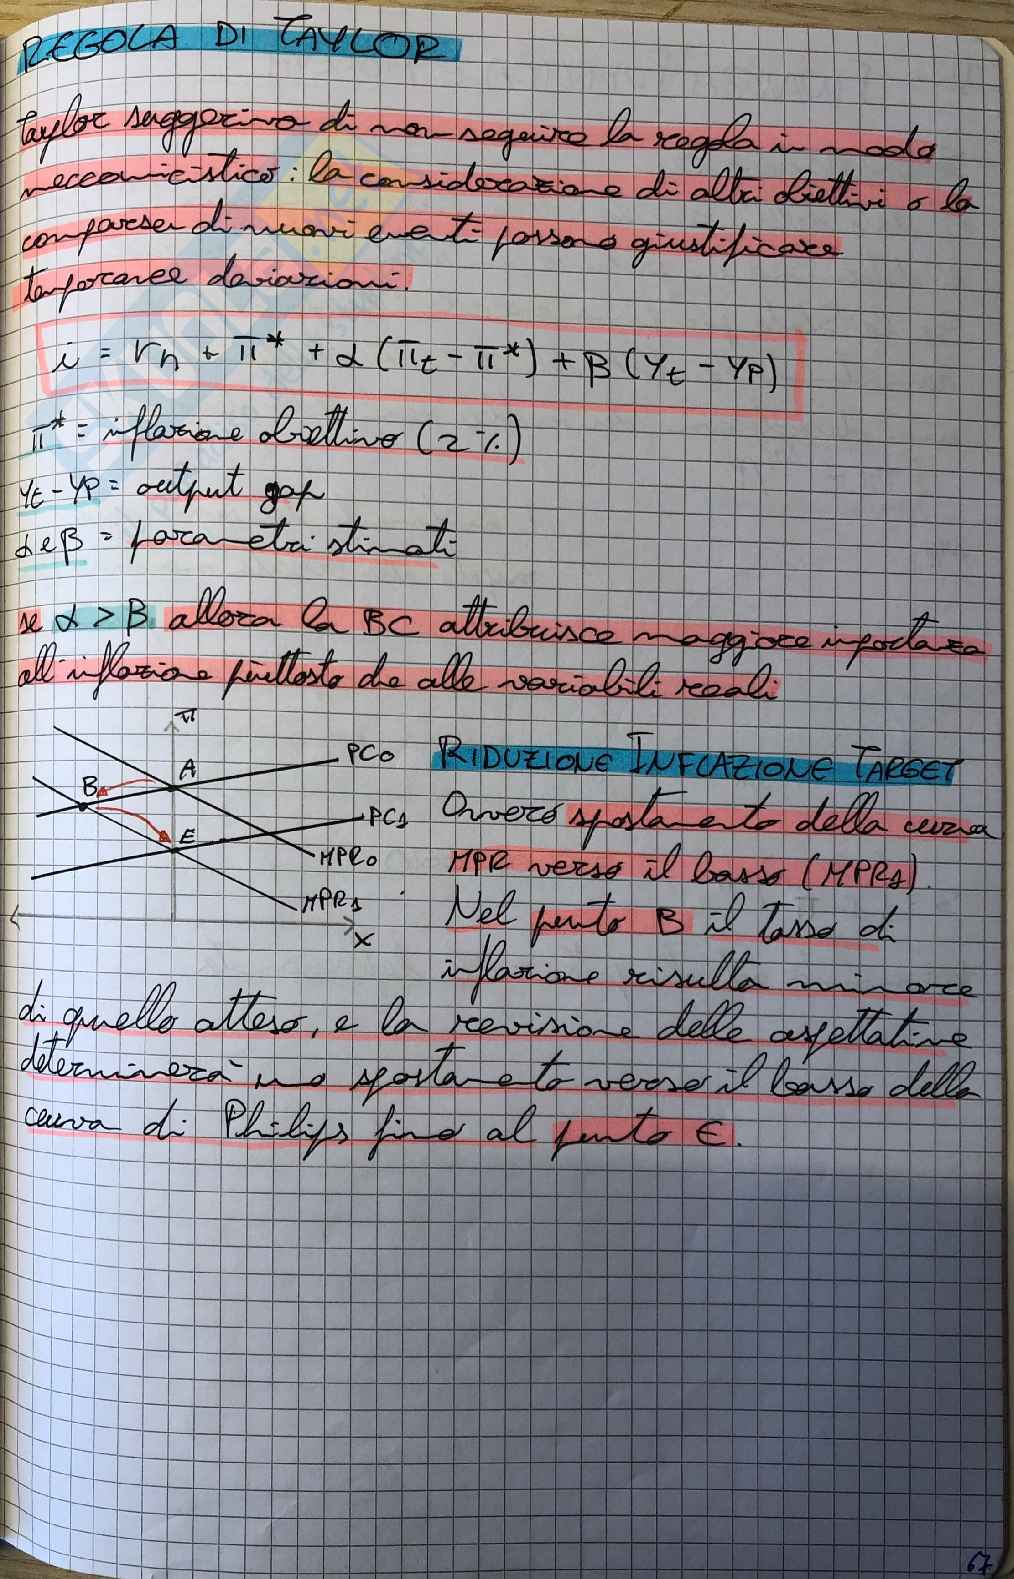 REGOLA DI TAYLOR
Taylor suggeriva di non seguire la regola in modo
meccanicistico: la considerazione di altri obiettivi o la
comparsa di nuovi eventi possono giustificare
temporanee deviazioni.
i = rn + π* + α (πt - π*) + β (Yt - YP)
π* = inflazione obiettivo (2%)
Yt - YP = output gap
α e β = parametri stimati
se α > β allora la BC attribuisce maggiore importanza
all'inflazione piuttosto che alle variabili reali
π
PC0
A
B
PC1
E
MPR0
MPR1
x
RIDUZIONE INFLAZIONE TARGET
Ovvero spostamento della curva
MPR verso il basso (MPR1).
Nel punto B il tasso di
inflazione risulta minore
di quello atteso, e la revisione delle aspettative
determinerà uno spostamento verso il basso della
curva di Philips fino al punto E.
67